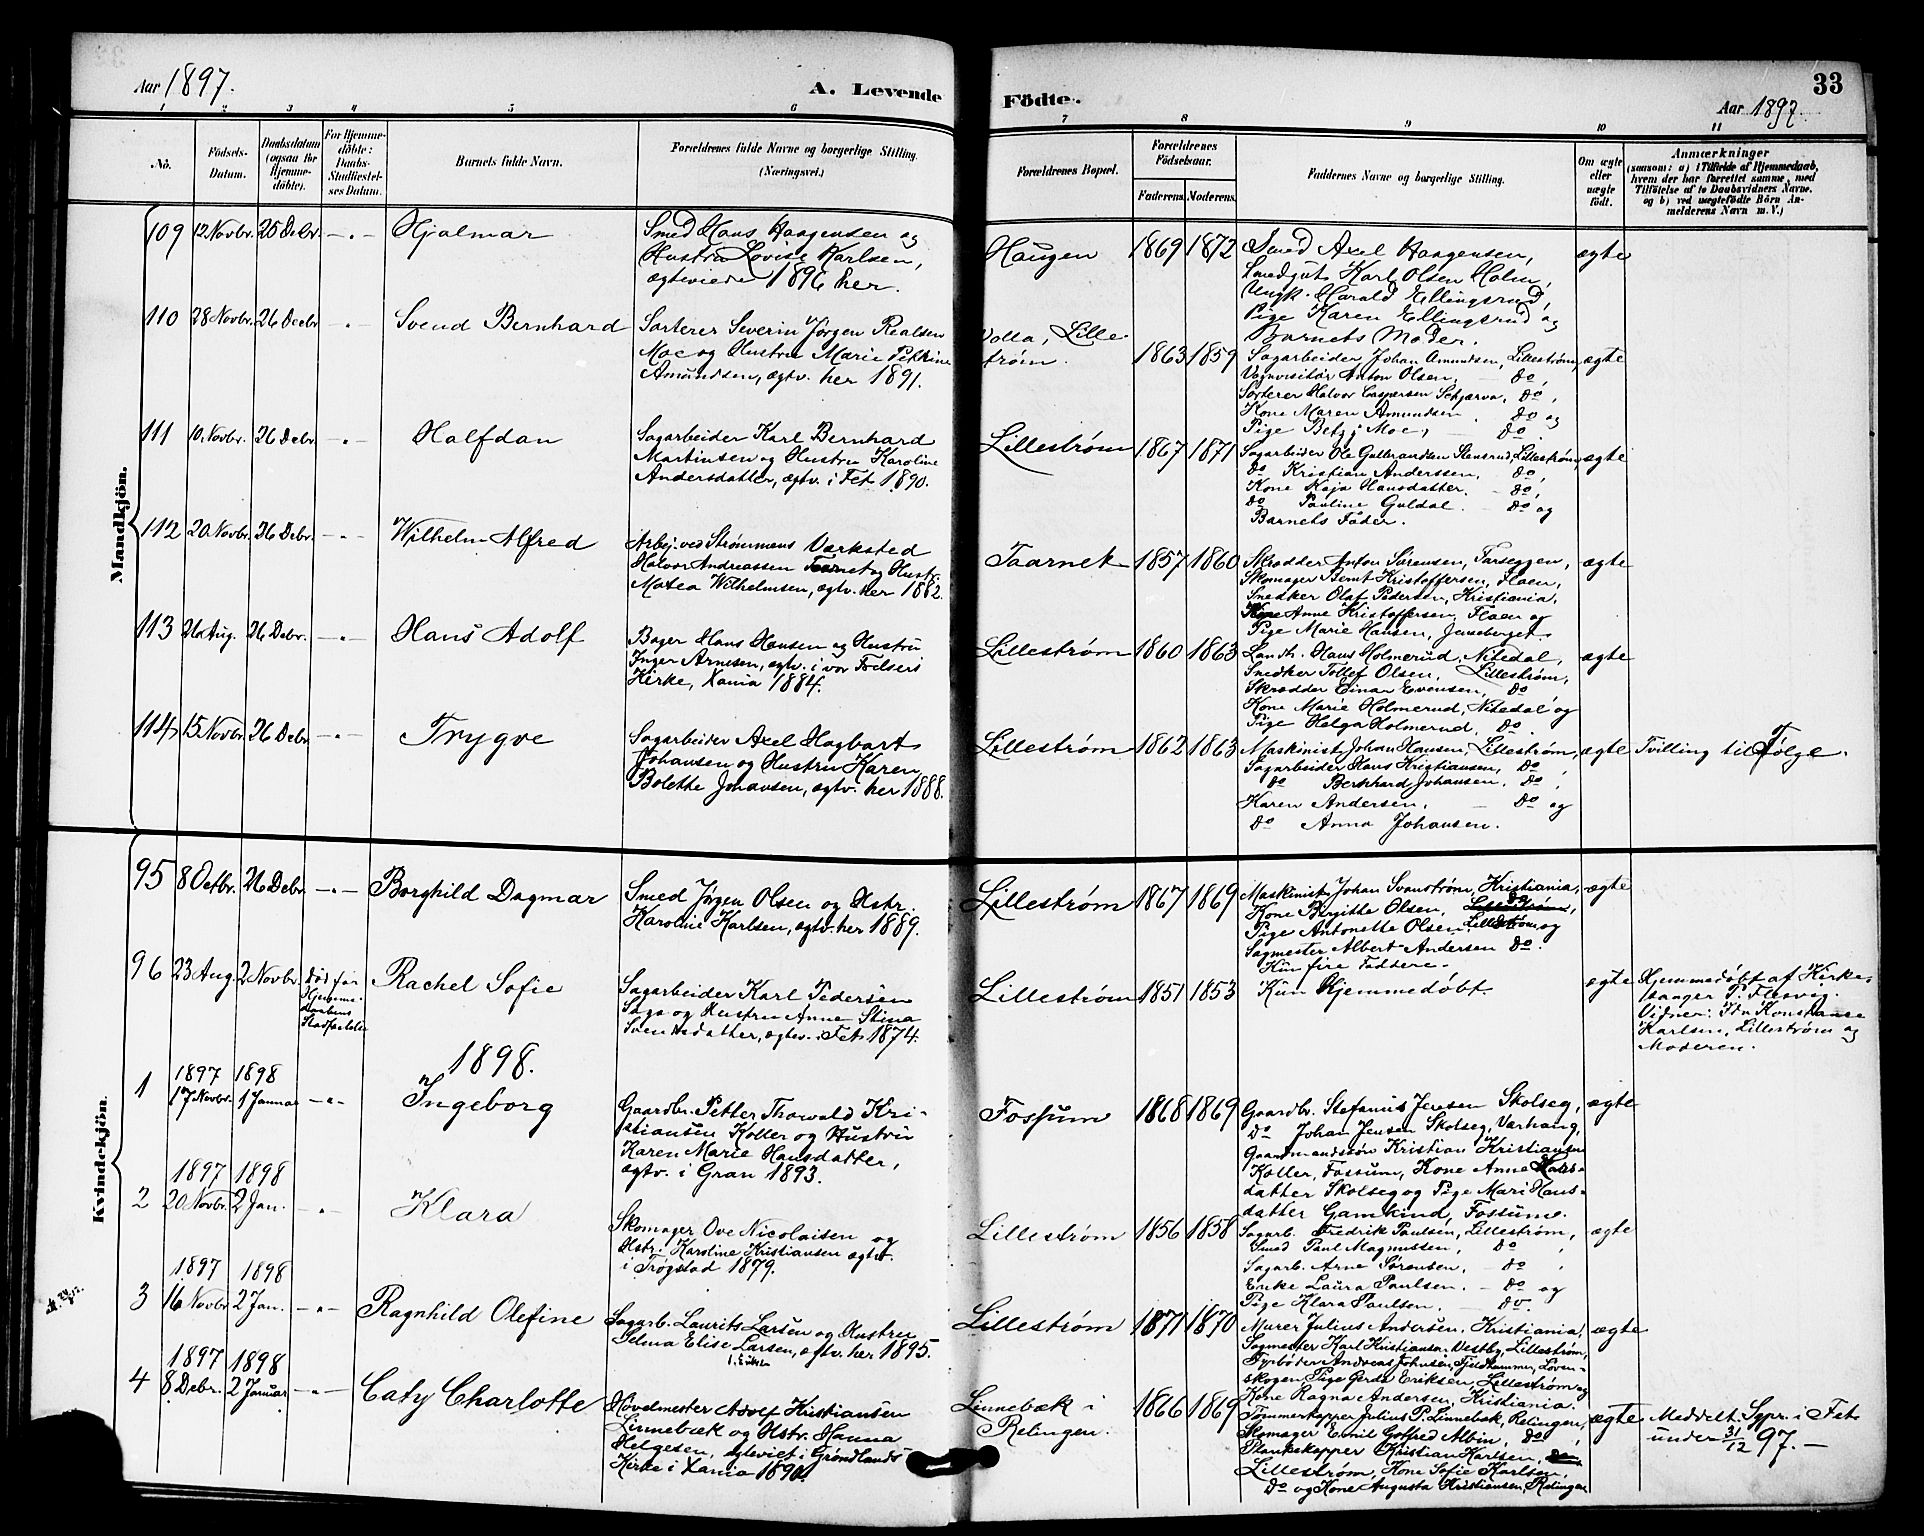 Aar 1897.
A. Levende
1 2 3 4 5 6
No.
Födsels-
Datum.
Daabsdatum
(ogsaa for
Hjemme-
döbte).
For Hjemme-
döbte:
Daabs-
Stadfæstel-
ses Datum.
Barnets fulde Navn.
Forældrenes fulde Navne og borgerlige Stilling.
(Næringsvei.)
Mandkjön.
109 12 Novbr. 25 Debr. -"- Hjalmar
Smed Hans Haagensen og
Hustru Lovise Karlsen,
ægteviede 1896 her.
110 28 Novbr. 26 Decbr -"- Svend Bernhard
Sorterer Severin Jørgen Realsen
Moe og Hustru Marie Petrine
Amundsen, ægtv. her 1891.
111 10. Novbr. 26 Debr. -"- Halfdan
Sagarbeider Karl Bernhard
Martinsen og Hustru Karoline
Andersdatter, ægtv. i Fet 1890.
112 20 Novbr. 26 Debr. -"- Wilhelm Alfred
Arbej. ved Strømmens Værksted
Halvor Andreassen Taarnet og Hust.
Matea Wilhelmsen, ægtv. her 1882.
113 21. Aug. 26 Debr. -"- Hans Adolf
Bager Hans Hansen og Hustru
Inger Arnesen, ægtv. i vor Frelsers
Kirke, Xania 1884.
114 15 Novbr. 26 Debr. -"- Trygve
Sagarbeider Axel Hagbart
Johansen og Hustru Karen
Bolette Johansen, ægtv. her 1888.
Kvindekjön.
95 8 Octbr. 26 Debr. -"- Borghild Dagmar
Smed Jørgen Olsen og Hstr.
Karoline Karlsen, ægtv. her 1889.
96 23 Aug. 2 Novbr. Død før
Hjemme-
daabens
Stadfæstelse
Rachel Sofie
Sagarbeider Karl Pedersen
Saga og Hustru Anne Stina
Svensdatter, ægtev. i Fet 1874.
1898.
1897 1898
1 17 Novbr. 1 Januar -"- Ingeborg
Gaardbr. Petter Thorvald Kri-
stiansen Koller og Hustru
Karen Marie Hansdatter,
ægtv. i Gran 1893.
1897 1898
2 20 Novbr. 2 Jan. -"- Klara
Skomager Ove Nicolaisen og
Hstr. Karoline Kristiansen ægtv.
i Trøgstad 1879.
1897 1898
3 16 Novbr 2 Jan. -"- Ragnhild Olefine
Sagarb. Laurits Larsen og Hustru
Selma Elise Larsen, ægtv. her 1895.
1897 1898
4 8 Debr. 2 Januar -"- Caty Charlotte
Høvelmester Adolf Kristiansen
Linnebæk og Hstr. Hanna
Helgesen, ægteviet i Grønlands
Kirke i Xania 1890.
Födte.
33
Aar 1897.
7 8 9 10 11
Forældrenes Bopæl.
Forældrenes
Födselsaar.
Faderens. Moderens.
Faddernes Navne og borgerlige Stilling.
Om ægte
eller
uægte
födt.
Anmærkninger
(saasom: a) i Tilfælde af Hjemmedaab,
hvem der har forrettet samme, med
Tilföielse af to Daabsvidners Navne.
og b) ved uægtefödte Börn An-
melderens Navn m. V.)
Haugen 1869 1872
Smed Axel Haagensen,
Smedgut Karl Olsen Holm,
Ungk. Harald Ellingsrud,
Pige Karen Ellingsrud og
Barnets Moder.
ægte
Volla, Lille
strøm. 1863 1859
Sagarbeider Johan Amundsen, Lillestrøm,
Vognvisitør Anton Olsen, do,
Sorterer Halvor Caspersen Schjærva, do,
Kone Maren Amundsen do og
Pige Betzy Moe, do
ægte
Lillestrøm 1867 1871
Sagarbeider Ole Gulbrandsen Stensrud, Lillestrøm,
do Kristian Anderssen, do,
Kone Kaja Hansdatter. do,
do Pauline Guldal. do og
Barnets Fader.
ægte
Taarnet 1857 1860
Skrædder Anton Sørensen, Tærseggen,
Skomager Bernt Kristoffersen, Flaen,
Snedker Olaf Pedersen, Kristiania,
Kone Anne Kristoffersen, Flaen og
Pige Marie Hansen, Jenseberget.
ægte
Lillestrøm 1860 1863
Landh. Hans Holmerud, Nitedal,
Snedker Tollef Olsen, Lillestrøm,
Skrædder Einar Evensen, do,
Kone Marie Holmerud, Nitedal og
Pige Helga Holmerud, do.
ægte
Lillestrøm 1862 1863
Maskinist Johan Hansen, Lillestrøm,
Sagarbeider Hans Kristiansen, do,
do Bernhard Johansen, do,
Karen Andersen, do og
do Anna Johansen.
ægte Tvilling til Følge.
Lillestrøm 1867 1869
Maskinist Johan Svanstrøm, Kristiania,
Kone Birgitte Olsen, do
Pige Antonette Olsen Lillestrøm og
Sagmester Albert Andersen do.
Kun fire Faddere.
ægte
Lillestrøm 1851 1853
Kun Hjemmedøbt
ægte
Hjemmedøbt af Kirke-
sanger P. Flesvig.
Vidner: Fru Konstanse
Karlsen, Lillestrøm og
Moderen.
Fossum 1868 1869
Gaardbr. Stefanus Jensen Skolseg,
do Johan Jensen Skolseg, Varhaug,
Gaardmandssøn Kristian Kristiansen
Koller, Fossum, Kone Anne Hans-
datter Skolseg og Pige Mari Hans-
datter Gamkind, Fossum.
ægte
Lillestrøm 1856 1858
Sagarb. Fredrik Paulsen, Lillestrøm,
Smed Paul Magnussen, do,
Sagarb. Arne Sørensen, do,
Enke Laura Paulsen. do og
Pige Klara Paulsen. do.
ægte
Lillestrøm 1871 1870
Murer Julius Andersen, Kristiania,
Sagmester Karl Kristiansen Vestby, Lillestrøm,
Fyrbøder Andreas Johnsen, Fjeldhammer, Løren-
skogen, Pige Gerda Eriksen, Lillestrøm og
Kone Ragna Andersen, Kristiania.
ægte
Linnebæk i
Relingen. 1866 1869
Tømmerkapper Julius P. Linnebæk, Relingen,
Skomager Emil Gotfred Albin, do,
Plankekapper Kristian Karlsen,
Lillestrøm, Kone Sofie Karlsen,
do og Kone Augusta Kristiansen, Relingen
ægte
Meddelt Spr. i Fet
under 31/12 97.-